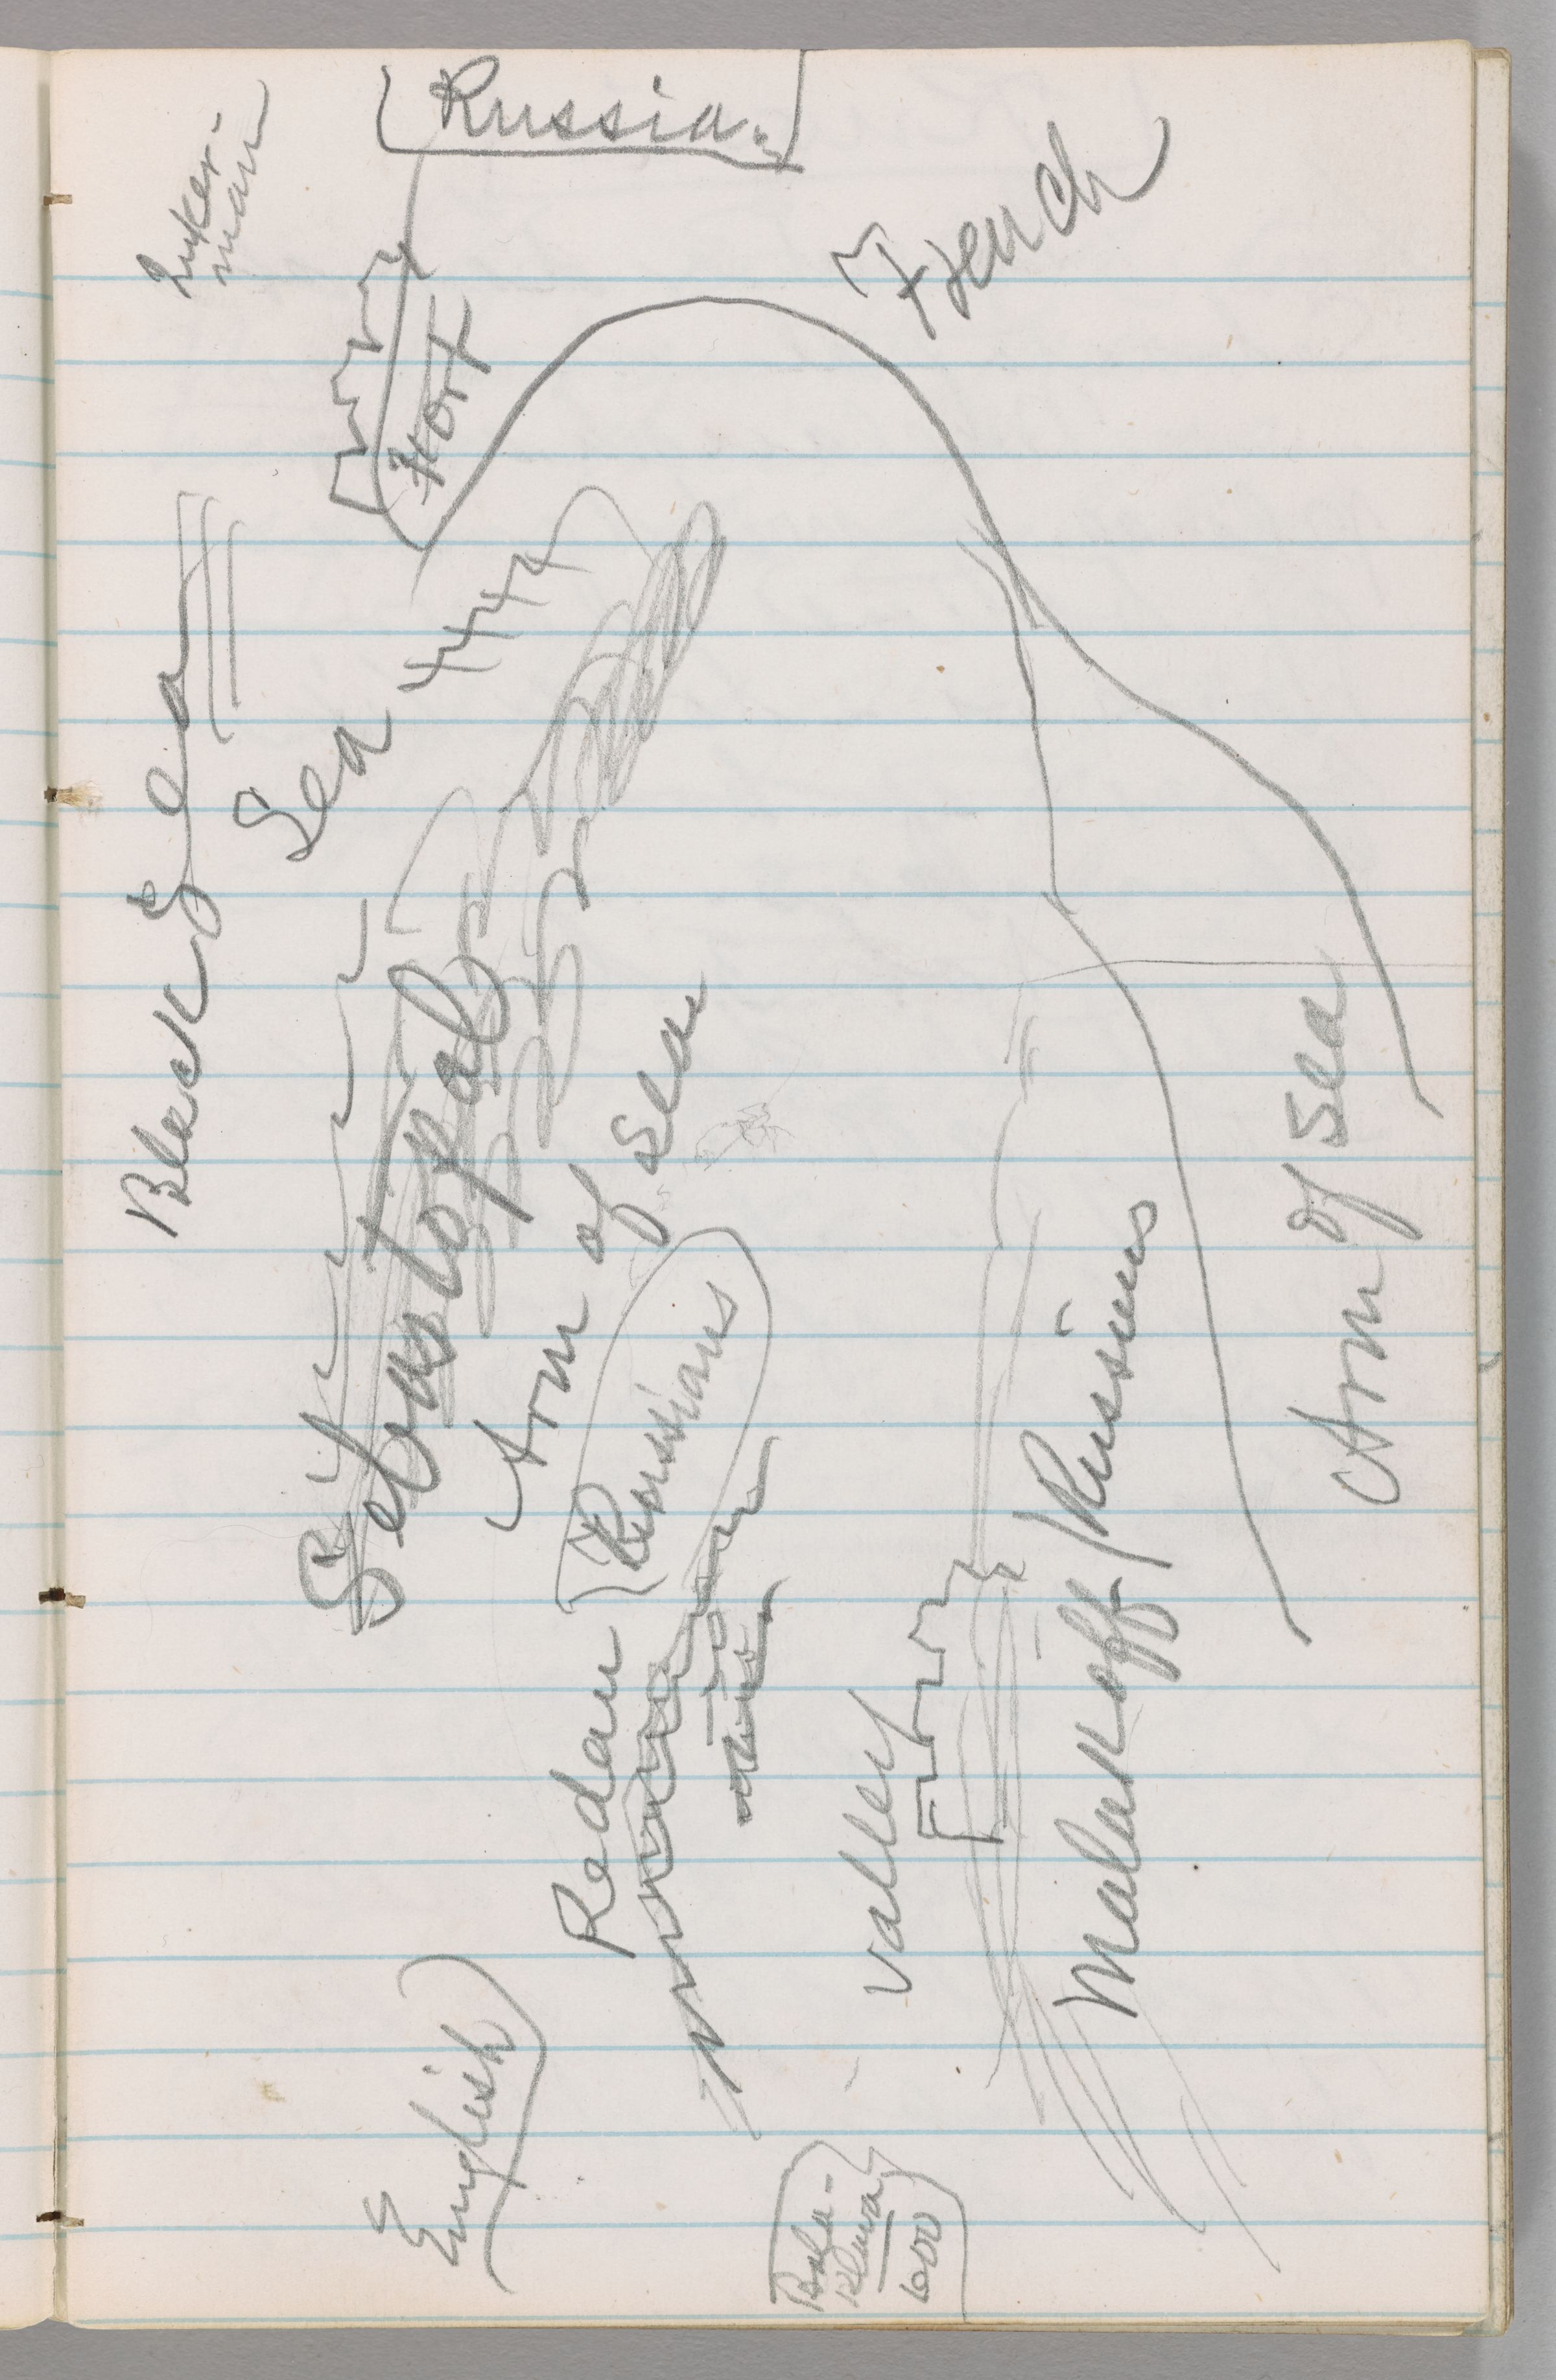 Russia.
Inker-
man
Fort
French
Black Sea
Sea
Sebastopal
Arm of Sea
Russians
Redan
valley
Malakoff / Russians
Arm of Sea
English
Bala-
klava
600